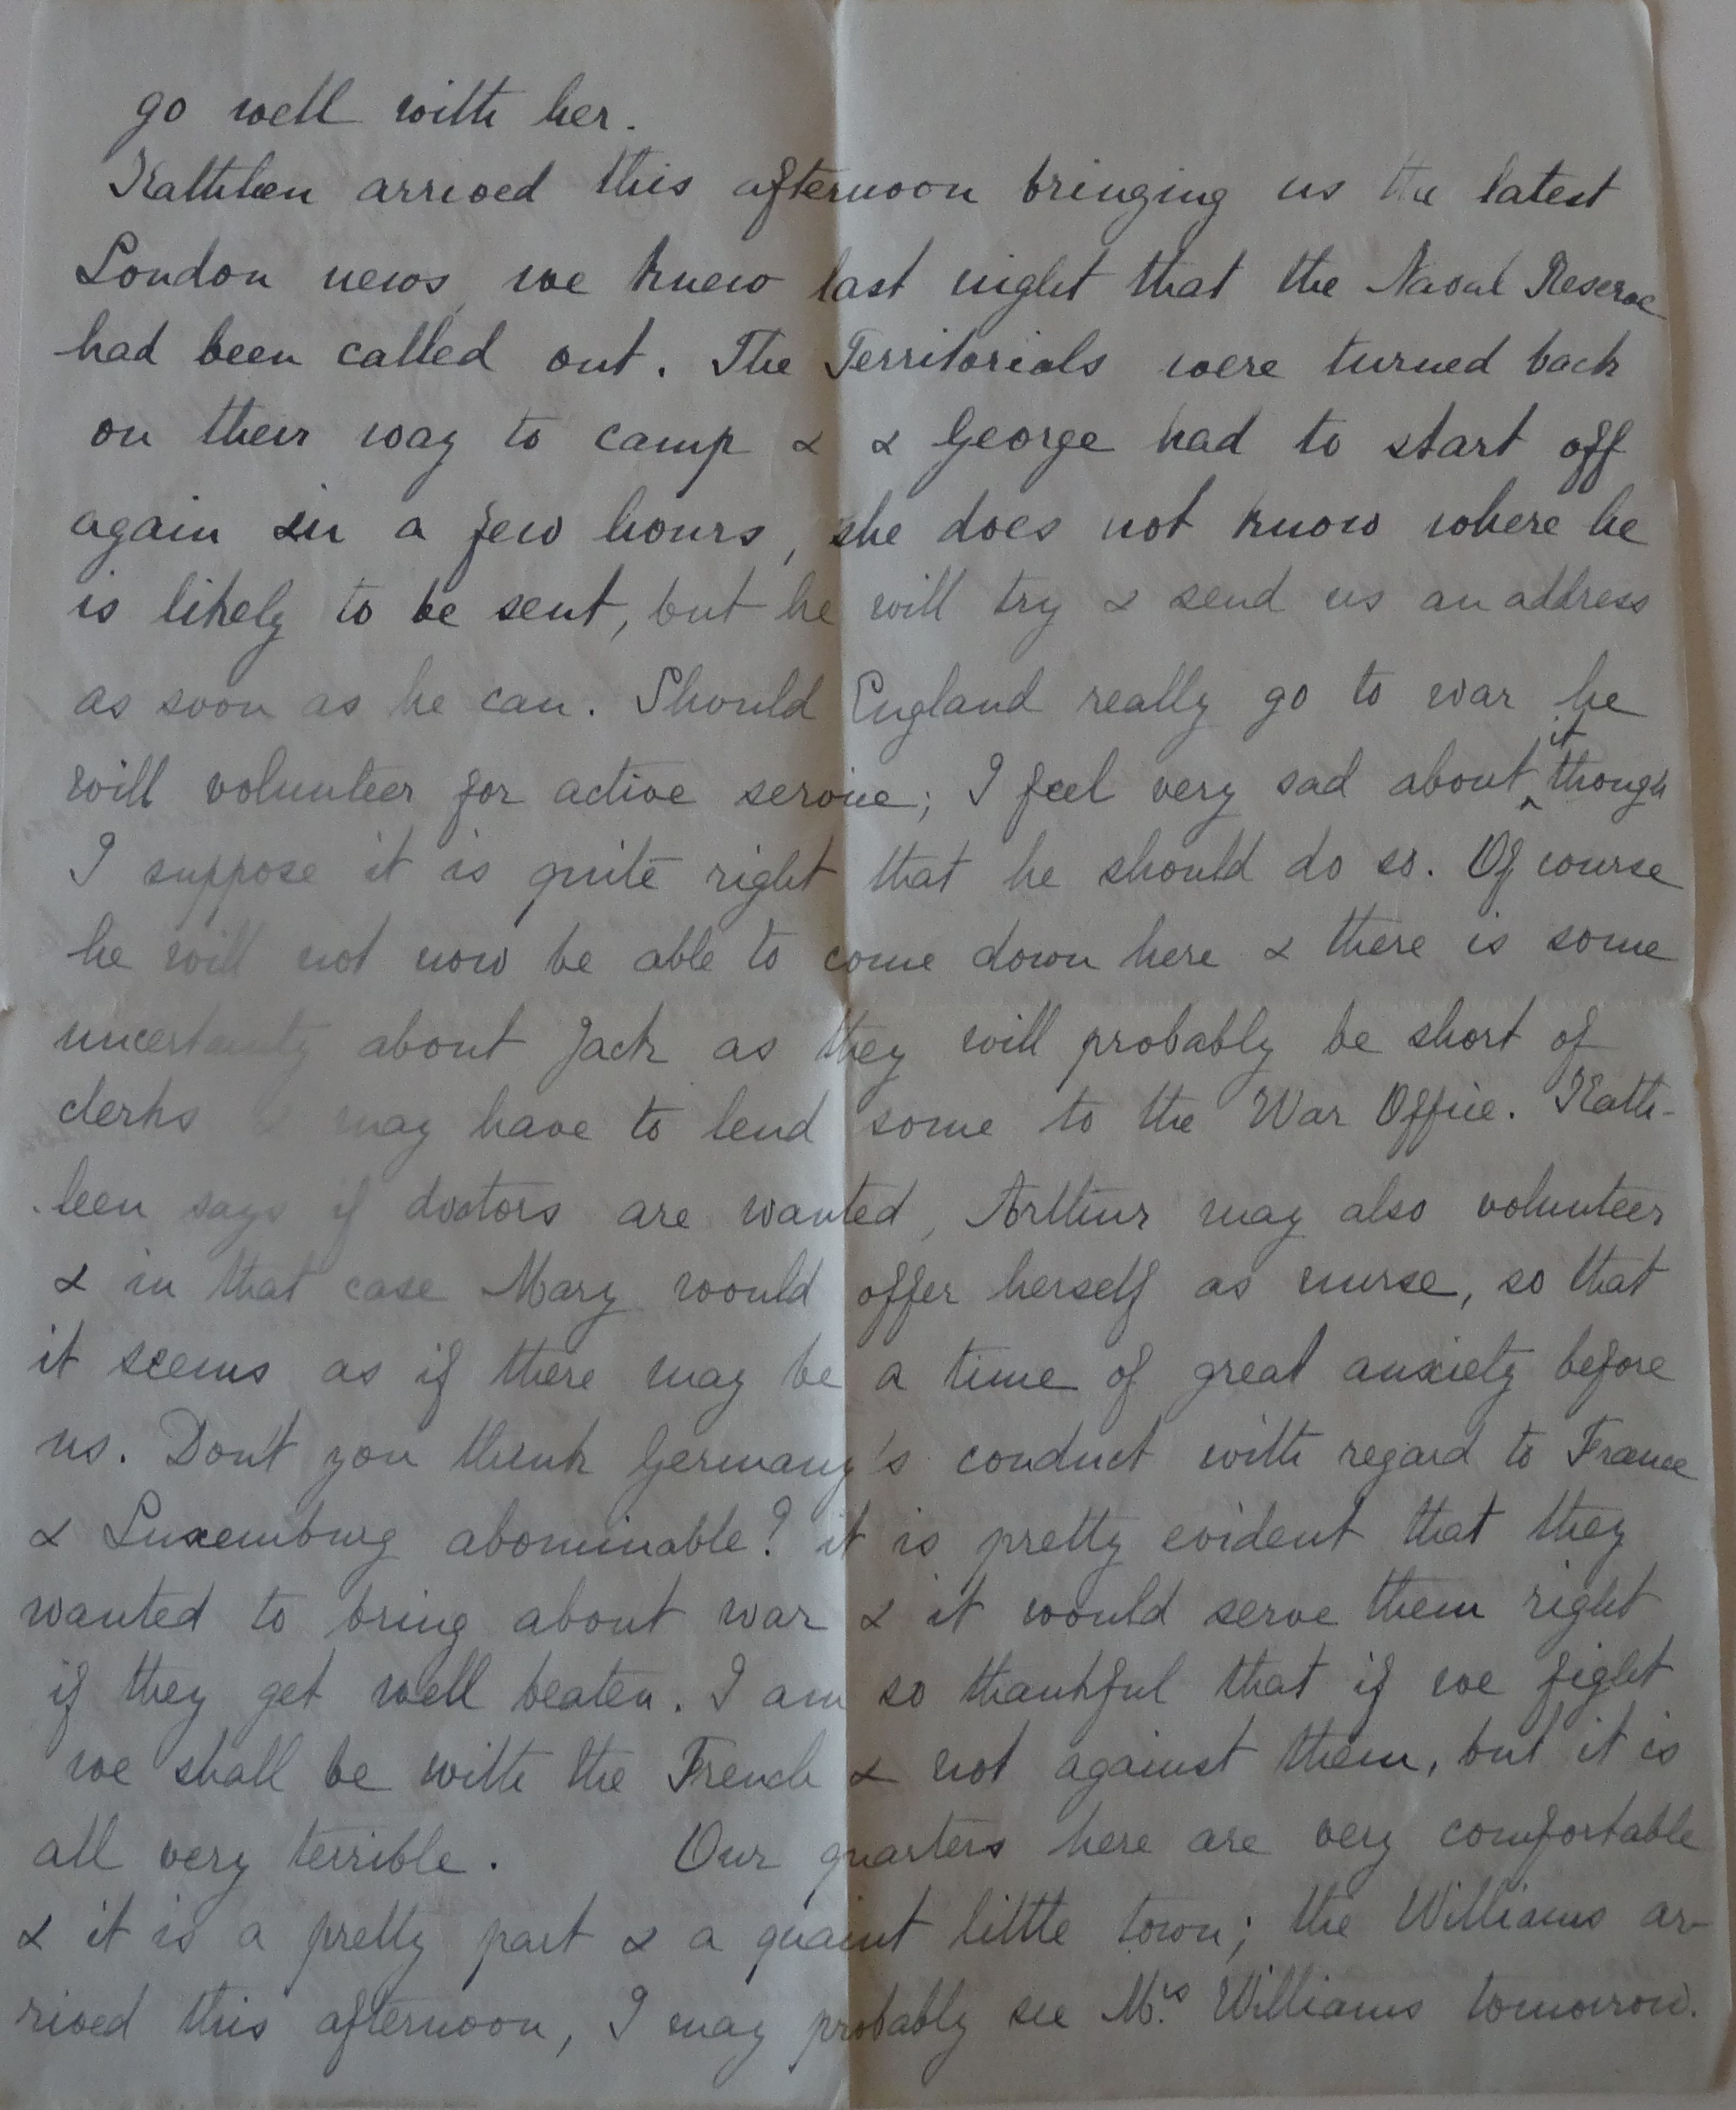 go well with her.
Kathleen arrived this afternoon bringing us the latest
London news, we knew last night that the Naval Reserve
had been called out. The Territorials were turned back
on their way to camp & & George had to start off
again in a few hours, she does not know where he
is likely to be sent, but he will try & send us an address
as soon as he can. Should England really go to war he
will volunteer for active service; I feel very sad about it though
I suppose it is quite right that he should do so. Of course
he will not now be able to come down here & there is some
uncertainty about Jack as they will probably be short of
clerks & may have to lend some to the War Office. Kath-
leen says if doctors are wanted, Arthur may also volunteer
& in that case Mary would offer herself as nurse, so that
it seems as if there may be a time of great anxiety before
us. Don't you think Germany's conduct with regard to France
& Luxemburg abominable? it is pretty evident that they
wanted to bring about war & it would serve them right
if they get well beaten. I am so thankful that if we fight
we shall be with the French & not against them, but it is
all very terrible. Our quarters here are very comfortable
& it is a pretty part & a quaint little town; the Williams ar-
rived this afternoon, I may probably see Mrs. Williams tomorrow.